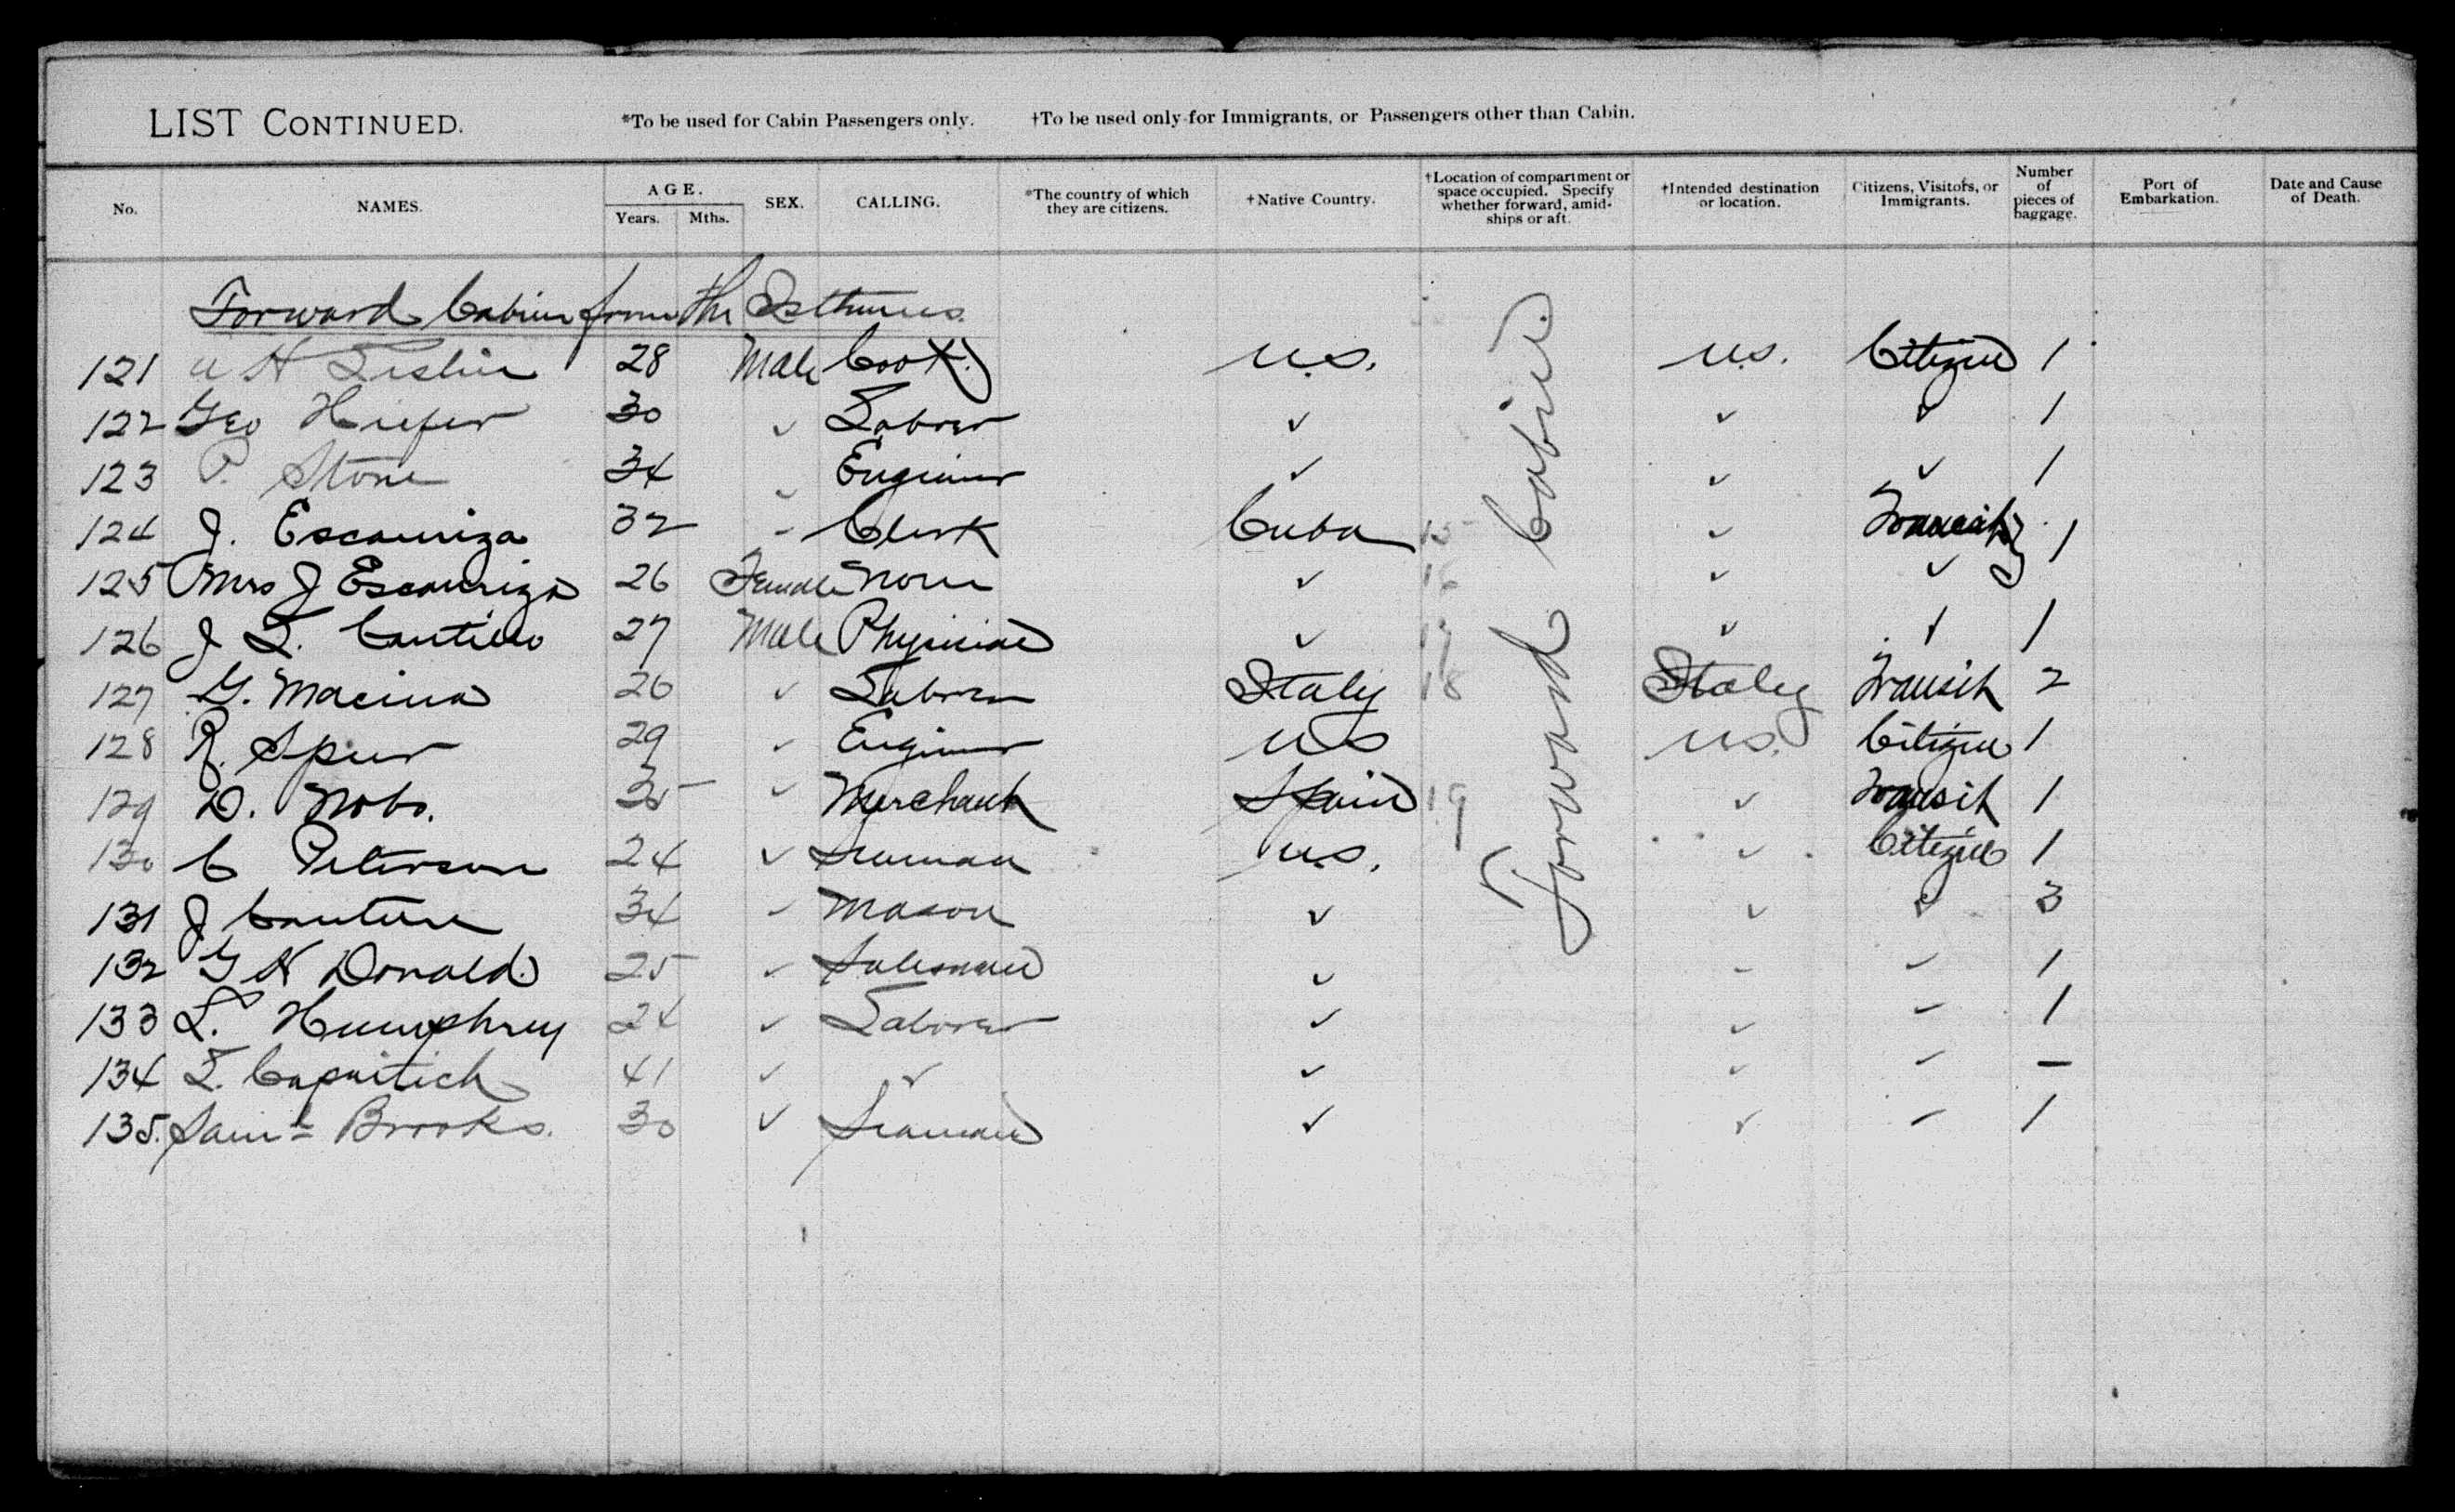 LIST CONTINUED. *To be used for Cabin Passengers only. †To be used only for Immigrants, or Passengers other than Cabin.
No. NAMES. AGE. Years. Mths. SEX. CALLING. *The country of which they are citizens. †Native Country. †Location of compartment or space occupied. Specify whether forward, amidships or aft. †Intended destination or location. Citizens, Visitors, or Immigrants. Number of pieces of baggage. Port of Embarkation. Date and Cause of Death.
Forward Cabin from the Isthmus.
Forward Cabin.
121 H 28 Male Cook U.S. U.S. Citizen 1
122 Geo Hiefer 30 ✓ Laborer ✓ ✓ ✓ 1
123 P. Stone 34 ✓ Engineer ✓ ✓ ✓ 1
124 J. Escauriza 32 - Clerk Cuba 15 ✓ Transit } 1
125 Mrs J Escauriza 26 Female None ✓ 16 ✓ ✓
126 J L. Cantillo 27 Male Physician ✓ 17 ✓ ✓ 1
127 G. Macina 26 ✓ Laborer Italy 18 Italy Transit 2
128 R. Spur 29 ✓ Engineer US U.S. Citizen 1
129 D. Nobo. 35 ✓ Merchant Spain 19 ✓ Transit 1
130 C Peterson 24 ✓ Seaman U.S. ✓ Citizen 1
131 J Couture 34 - Mason ✓ ✓ ✓ 3
132 G H Donald. 25 ✓ Salesman ✓ - ✓ 1
133 L. Humphrey 24 ✓ Laborer ✓ ✓ - 1
134 L. 41 ✓ ✓ ✓ ✓ - -
135. Saml Brooks. 30 ✓ Seaman ✓ ✓ - 1